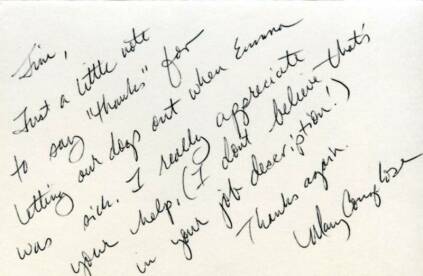 Jim,
Just a little note
to say "thanks" for
letting our dogs out when Emma
was sick. I really appreciate
your help. (I don't believe that's
in your job description!)
Thanks again.
Mary